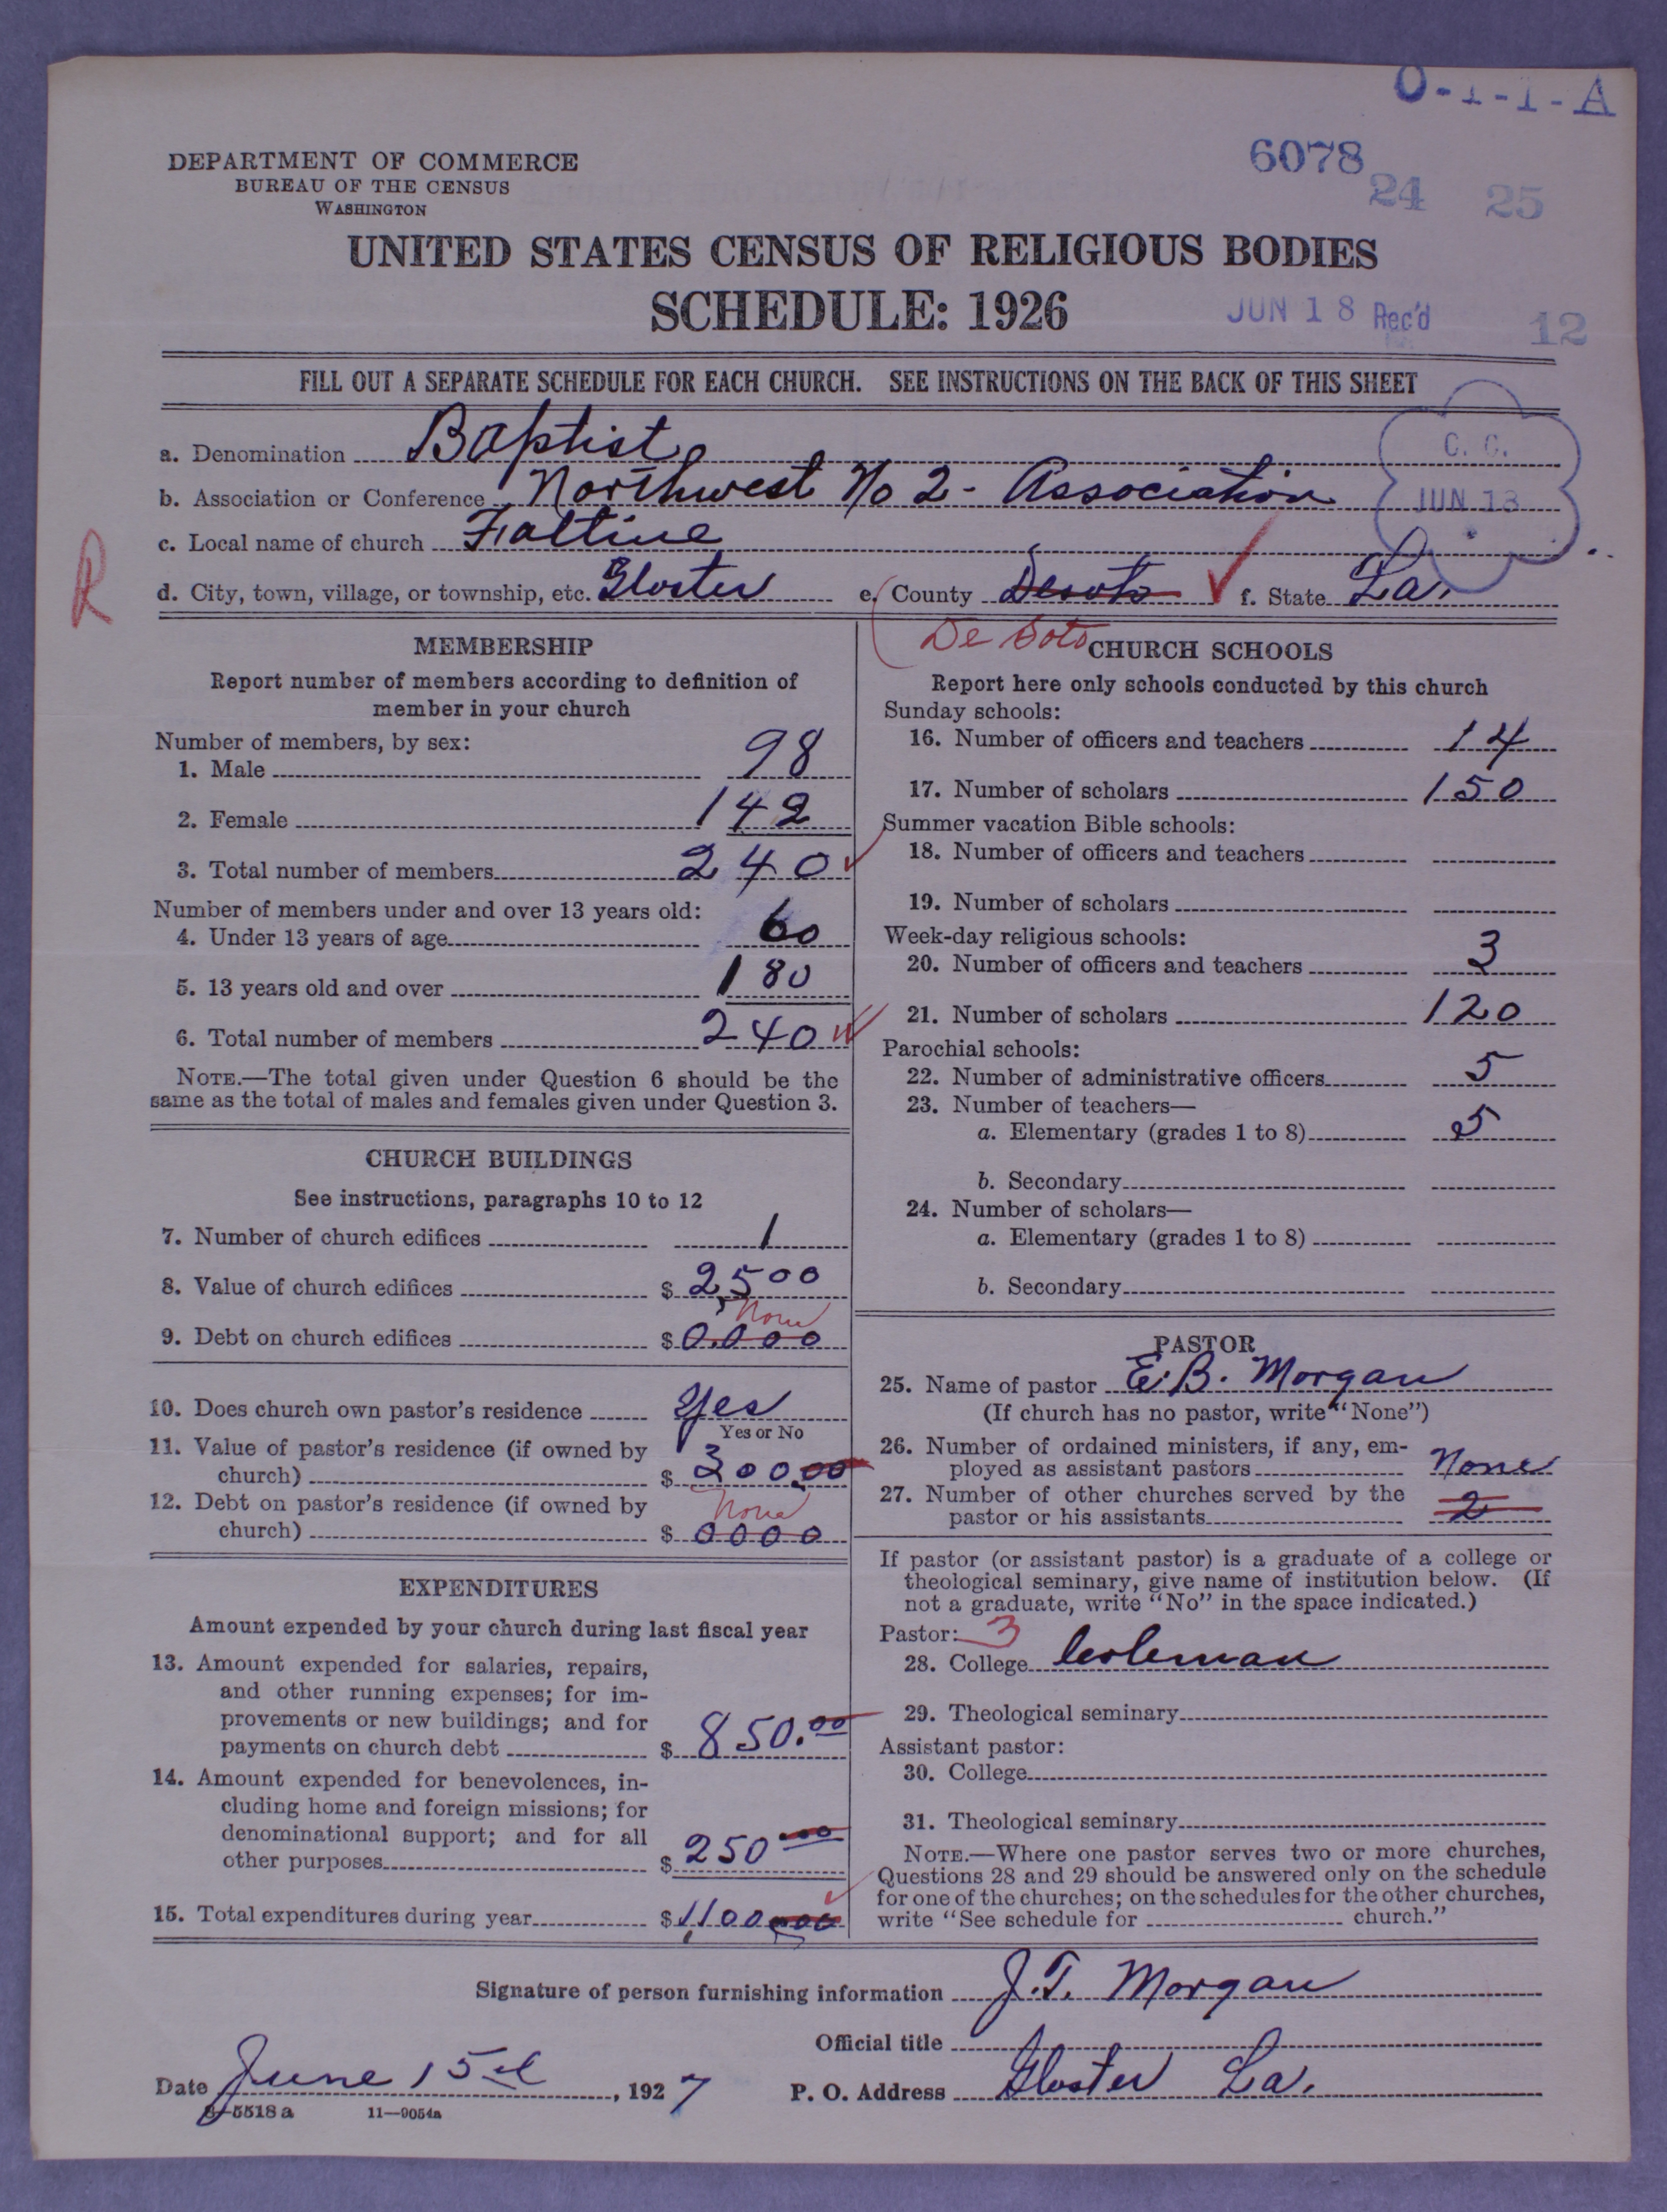 O-1-1-A
6078
24 25
DEPARTMENT OF COMMERCE
BUREAU OF THE CENSUS
WASHINGTON
UNITED STATES CENSUS OF RELIGIOUS BODIES
SCHEDULE: 1926
JUN 18 Rec'd
12
FILL OUT A SEPARATE SCHEDULE FOR EACH CHURCH. SEE INSTRUCTIONS ON THE BACK OF THIS SHEET
C. C.
JUN 18
a. Denomination Baptist
b. Association or Conference Northwest No 2 - Association
c. Local name of church Faltine
R
d. City, town, village, or township, etc. Gloster e. County Desoto f. State La.
De Soto
MEMBERSHIP
Report number of members according to definition of
member in your church
Number of members, by sex:
1. Male 98
2. Female 142
3. Total number of members 240
Number of members under and over 13 years old:
4. Under 13 years of age 60
5. 13 years old and over 180
6. Total number of members 240
NOTE.—The total given under Question 6 should be the
same as the total of males and females given under Question 3.
CHURCH BUILDINGS
See instructions, paragraphs 10 to 12
7. Number of church edifices 1
8. Value of church edifices $ 2,500
None
9. Debt on church edifices $ 0.000
10. Does church own pastor's residence Yes
Yes or No
11. Value of pastor's residence (if owned by
church) $ 300.00
None
12. Debt on pastor's residence (if owned by
church) $ 0000
EXPENDITURES
Amount expended by your church during last fiscal year
13. Amount expended for salaries, repairs,
and other running expenses; for im-
provements or new buildings; and for
payments on church debt $ 850.00
14. Amount expended for benevolences, in-
cluding home and foreign missions; for
denominational support; and for all
other purposes $ 250.00
15. Total expenditures during year $ 1,100.00
CHURCH SCHOOLS
Report here only schools conducted by this church
Sunday schools:
16. Number of officers and teachers 14
17. Number of scholars 150
Summer vacation Bible schools:
18. Number of officers and teachers
19. Number of scholars
Week-day religious schools:
20. Number of officers and teachers 3
21. Number of scholars 120
Parochial schools:
22. Number of administrative officers 5
23. Number of teachers—
a. Elementary (grades 1 to 8) 5
b. Secondary
24. Number of scholars—
a. Elementary (grades 1 to 8)
b. Secondary
PASTOR
25. Name of pastor E. B. Morgan
(If church has no pastor, write "None")
26. Number of ordained ministers, if any, em-
ployed as assistant pastors None
27. Number of other churches served by the
pastor or his assistants 2
If pastor (or assistant pastor) is a graduate of a college or
theological seminary, give name of institution below. (If
not a graduate, write "No" in the space indicated.)
Pastor: 3
28. College Coleman
29. Theological seminary
Assistant pastor:
30. College
31. Theological seminary
NOTE.—Where one pastor serves two or more churches,
Questions 28 and 29 should be answered only on the schedule
for one of the churches; on the schedules for the other churches,
write "See schedule for church."
Signature of person furnishing information J. T. Morgan
Official title
Date June 15th, 1927 P. O. Address Gloster La.
8-5518 a 11—9054a